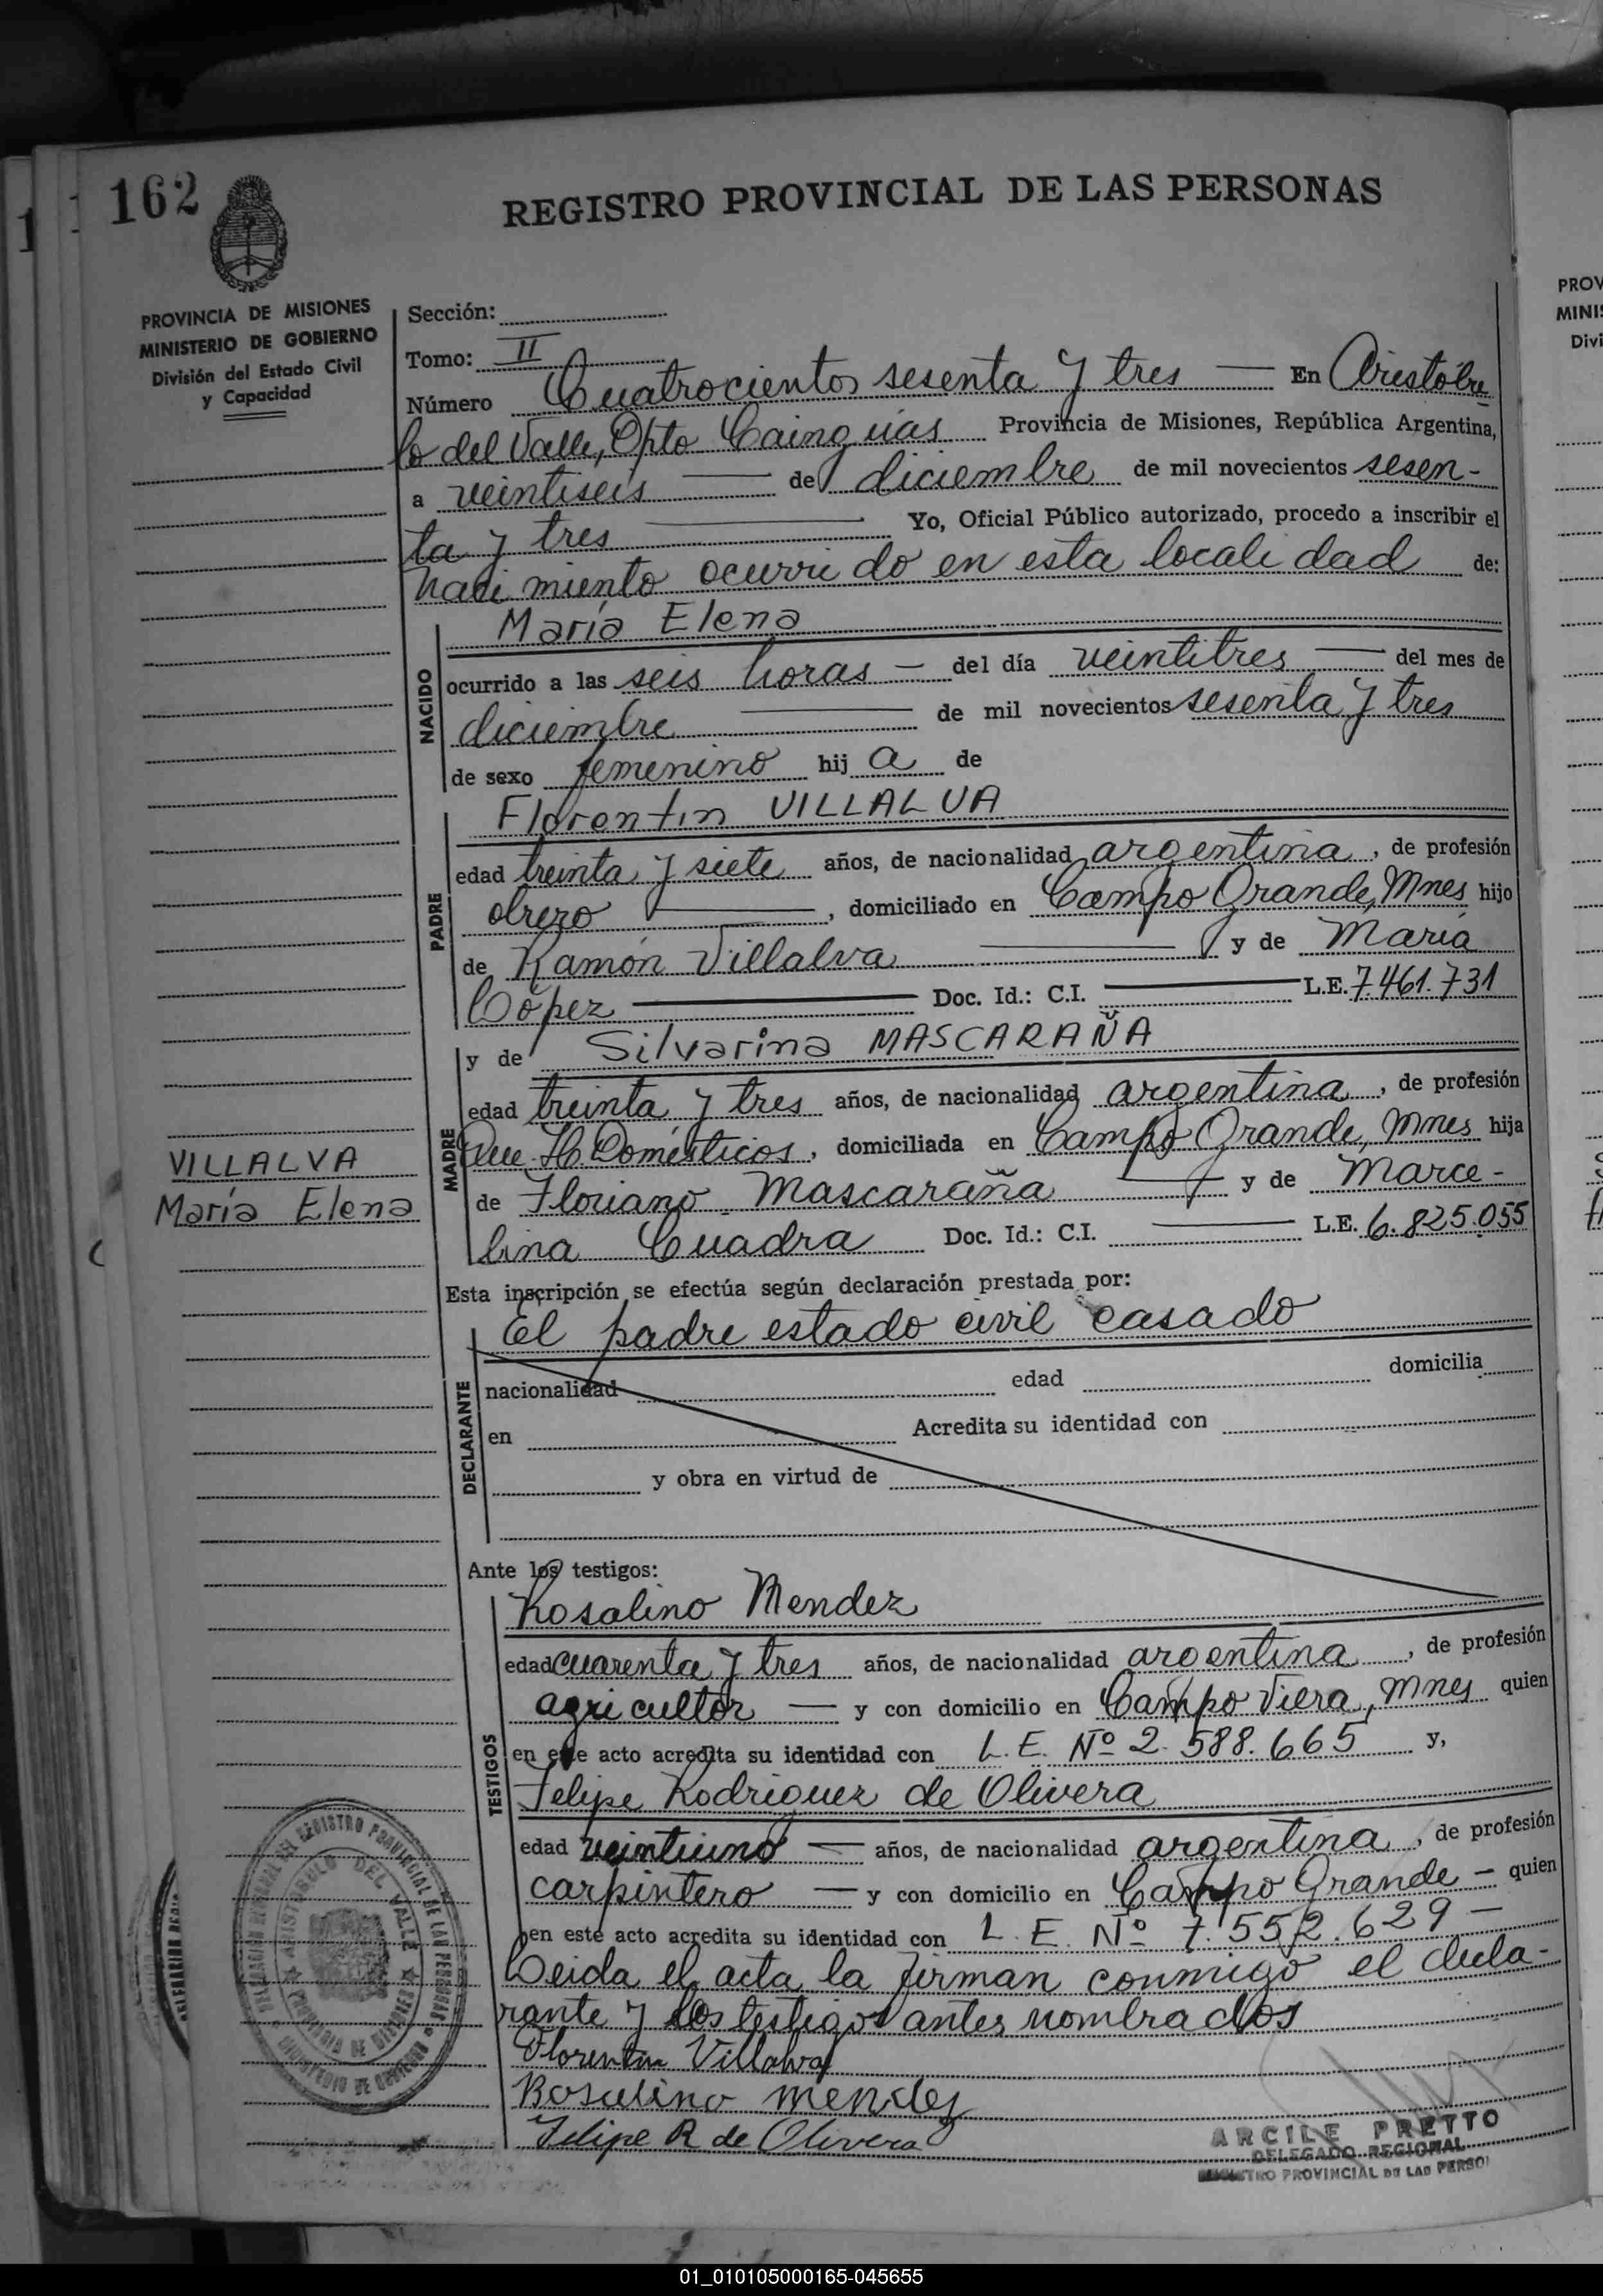 162
REGISTRO PROVINCIAL DE LAS PERSONAS
PROVINCIA DE MISIONES
MINISTERIO DE GOBIERNO
División del Estado Civil
y Capacidad
Sección:
Tomo: II
Número Cuatrocientos sesenta y tres — En Aristóbu
lo del Valle, Dpto Cainguás Provincia de Misiones, República Argentina,
a veintiseis — de diciembre de mil novecientos sesen-
ta y tres — Yo, Oficial Público autorizado, procedo a inscribir el
nacimiento ocurrido en esta localidad de:
NACIDO
María Elena
ocurrido a las seis horas — del día veintitres — del mes de
diciembre — de mil novecientos sesenta y tres
de sexo femenino hij a de
PADRE
Florentin VILLALVA
edad treinta y siete años, de nacionalidad argentina, de profesión
obrero —, domiciliado en Campo Grande, Mnes hijo
de Ramón Villalva — y de María
López — Doc. Id.: C.I. — L.E. 7.461.731
MADRE
y de Silvarina MASCARAÑA
edad treinta y tres años, de nacionalidad argentina, de profesión
Domésticos, domiciliada en Campo Grande, Mnes hija
de Floriano Mascaraña — y de Marce-
lina Cuadra Doc. Id.: C.I. — L.E. 6.825.055
VILLALVA
María Elena
Esta inscripción se efectúa según declaración prestada por:
DECLARANTE
El padre estado civil casado
nacionalidad edad domicilia
en Acredita su identidad con
y obra en virtud de
Ante los testigos:
TESTIGOS
Rosalino Mendez
edad cuarenta y tres años, de nacionalidad argentina, de profesión
agricultor — y con domicilio en Campo Viera, Mnes quien
en este acto acredita su identidad con L.E. Nº 2.588.665 y,
Felipe Rodriguez de Olivera
edad veintiuno — años, de nacionalidad argentina, de profesión
carpintero — y con domicilio en Campo Grande — quien
en este acto acredita su identidad con L.E. Nº 7.552.629 —
Leida el acta la firman conmigo el decla-
rante y los testigos antes nombrados
Florentin Villalva
Rosalino mendez
Felipe R de Olivera
ARCILE PRETTO
DELEGADO REGIONAL
REGISTRO PROVINCIAL DE LAS PERSO
DELEGACION REGIONAL DEL REGISTRO PROVINCIAL DE LAS PERSONAS
MINISTERIO DE GOBIERNO
ARISTOBULO DEL VALLE
PROVINCIA DE MISIONES
PROV
MINIS
Divi
01_010105000165-045655